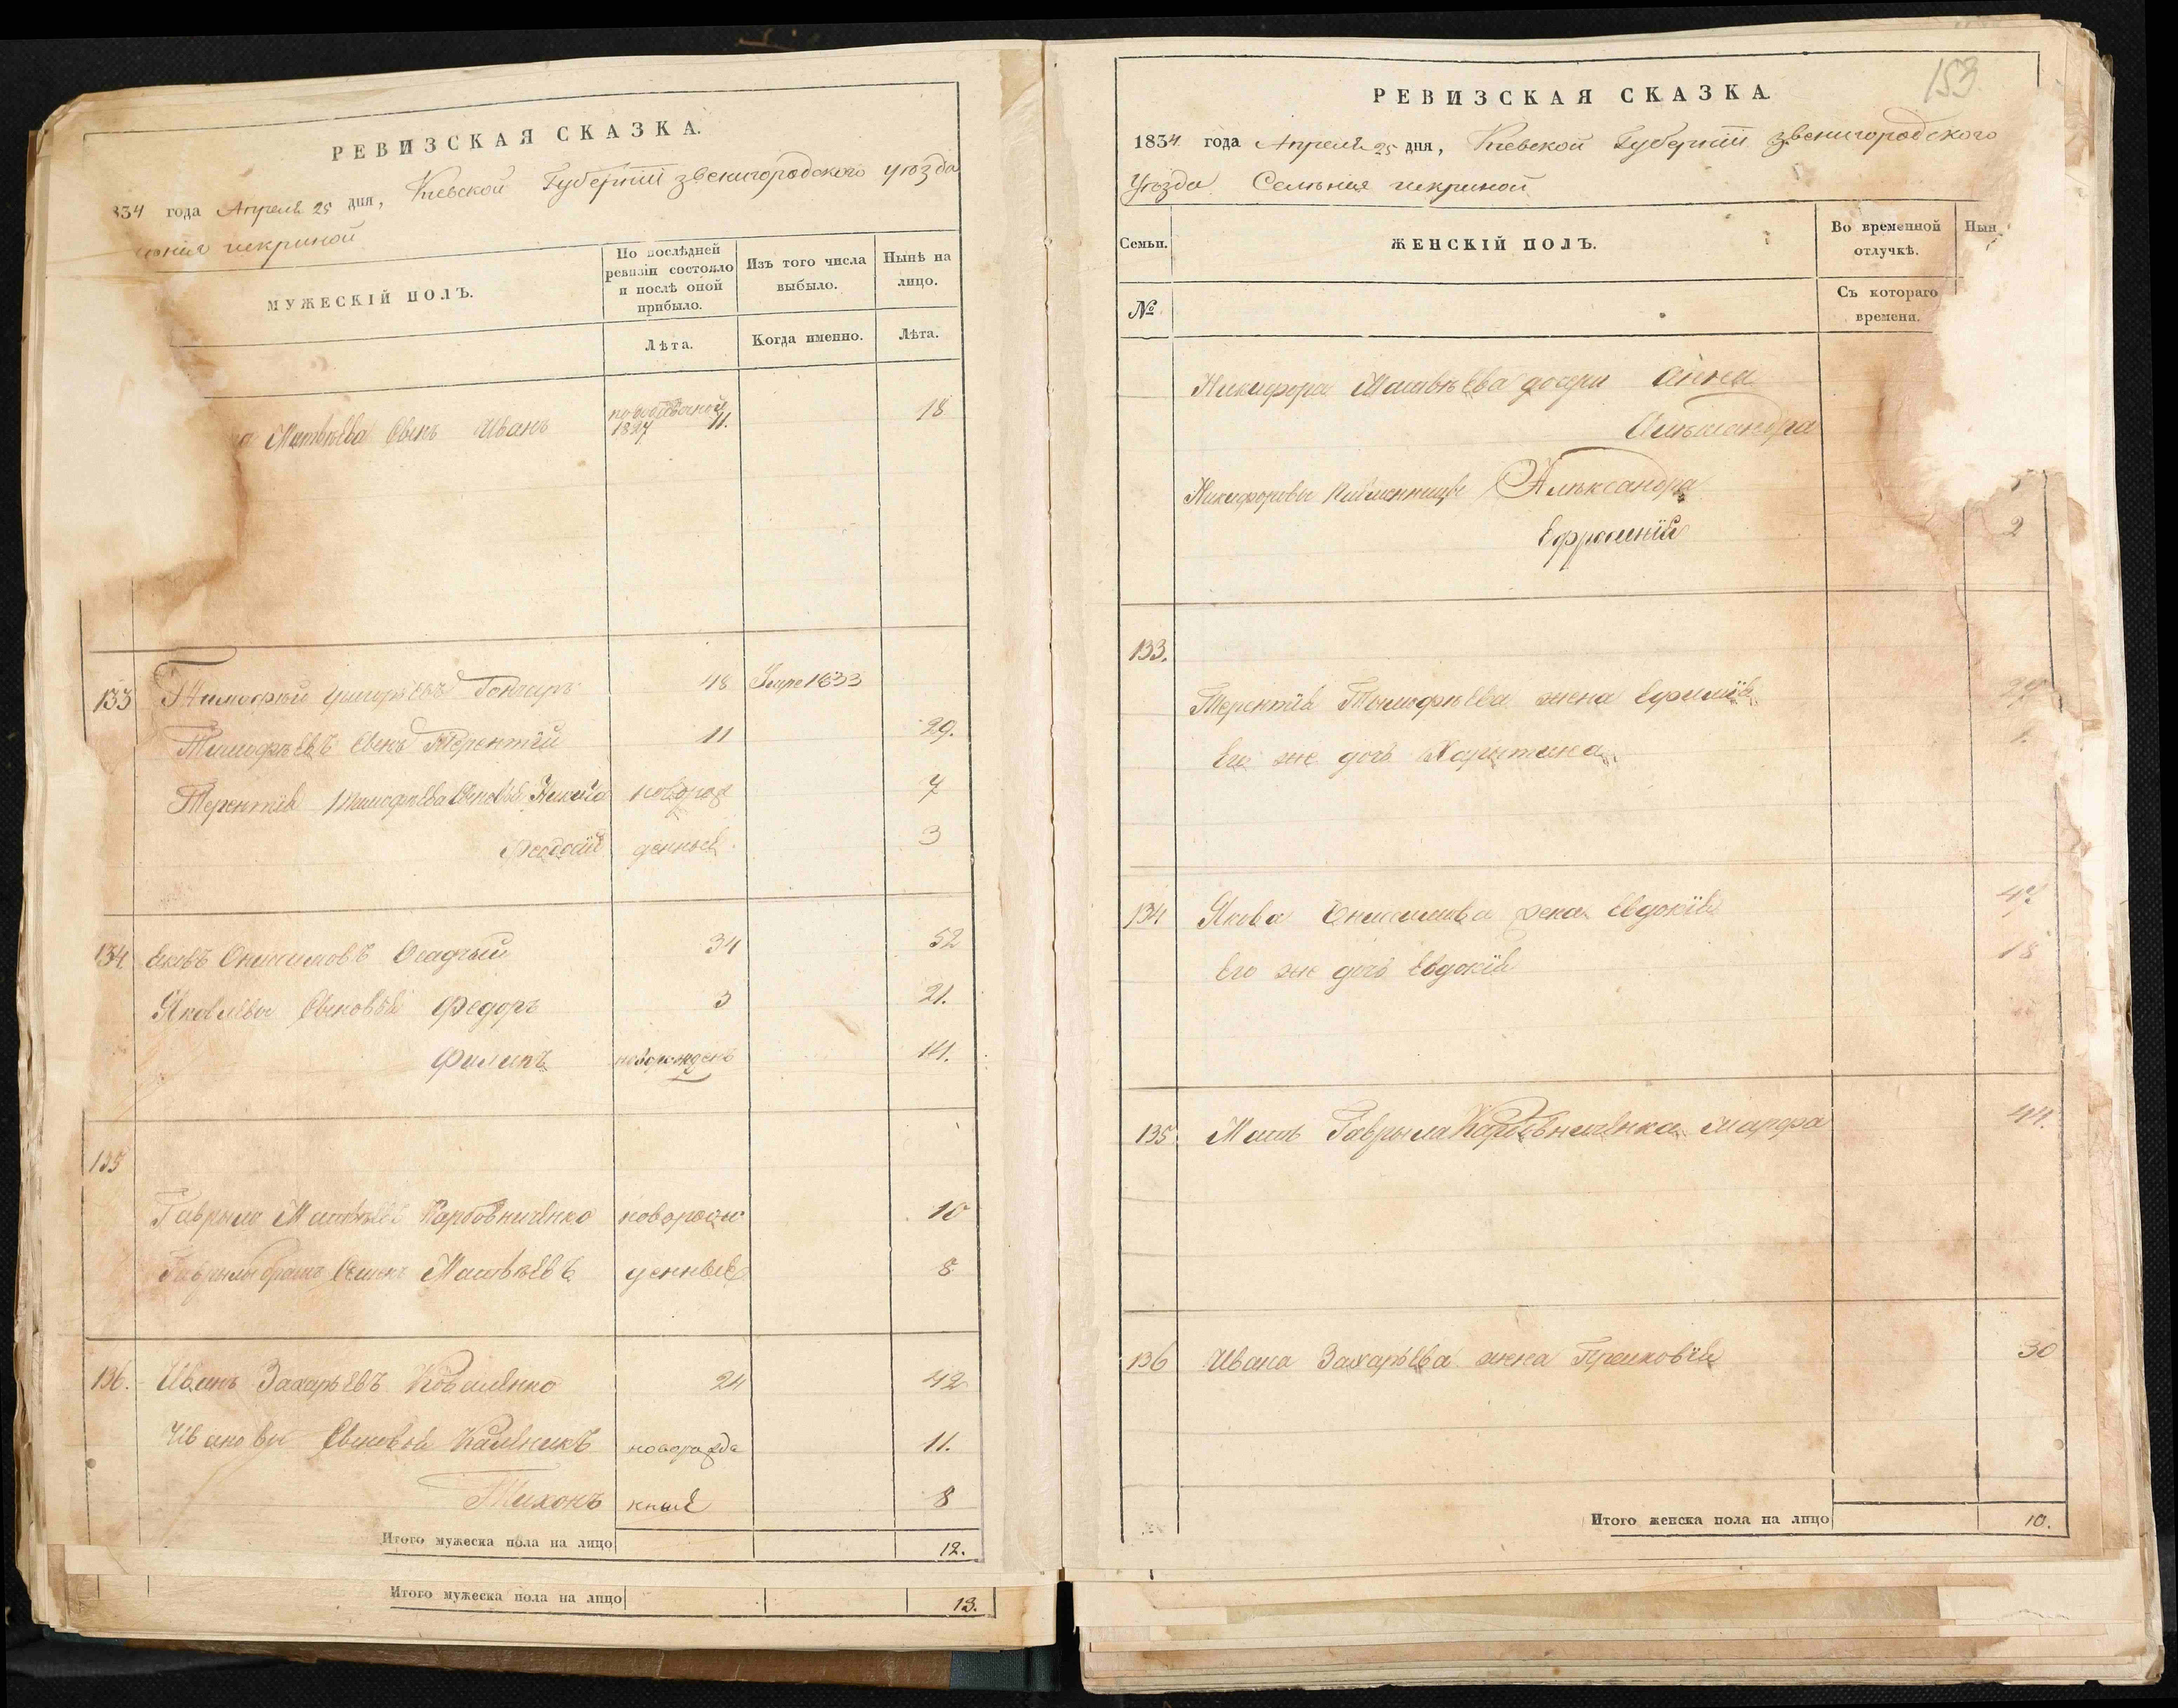 РЕВИЗСКАЯ СКАЗКА.
834 года Апреля 25 дня, Киевской Губернии звенигородского уѣзда
чекриной
МУЖЕСКІЙ ПОЛЪ.
По послѣдней ревизіи состояло и послѣ оной прибыло.
Изъ того числа выбыло.
Нынѣ на лицо.
Лѣта.
Когда именно.
Лѣта.
Матвѣева Сынъ Иванъ 1827 11. 18
133 Тимофѣй Гончаръ 48 Умре 1833
Тимофѣевъ Сынъ Терентий 11 29.
Терентия Тимофѣева Сыновья Никита новорож 7
денные 3
134. Яковъ Онисимовъ Осадчый 34 52
Яковлевы Сыновья Федоръ 3 21.
Филипъ новорожденъ 14.
135
Гаврыло Матвѣевъ Карбовниченко новорож 10
Гаврылы братъ Матвѣевъ денные 8
136. Иванъ Захарьевъ Коваленко 24 42
Ивановы Сыновья Калѣникъ новорожде 11.
Тихонъ нные 8
Итого мужеска пола на лицо 12.
Итого мужеска пола на лицо 13.
153
РЕВИЗСКАЯ СКАЗКА
1834 года Апреля 25 дня, Киевской Губернии звенигородского
Уѣзда Селѣния чекриной
Семьи.
ЖЕНСКІЙ ПОЛЪ.
Во временной отлучкѣ.
Нын
№
Съ котораго времени.
Никифора Матвѣева дочери Анна
Алѣксандра
Никифоровы племенницы Алѣксандра
Ефросиния 2
133.
Терентия Тымофѣева жена Ефимия 29
Его же дочь Харытина 1.
134 Якова Онисимова жена Евдокия 47
Его же дочь Евдокия 18
135. Мать Гаврыла Карбовниченка Марфа 44.
136 Ивана Захарьева жена Прасковия 30
Итого женска пола на лицо 10.